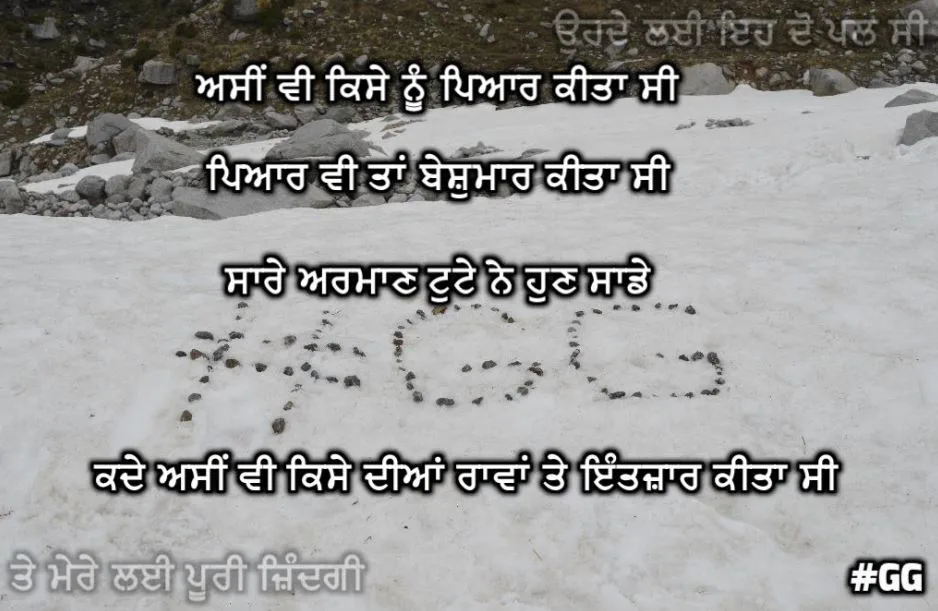 ਉਰਦੇ ਲਈ ਇਹ ਦੋ ਪਲ ਸੀ
ਅਸੀਂ ਵੀ ਕਿਸੇ ਨੂੰ ਪਿਆਰ ਕੀਤਾ ਸੀ
ਪਿਆਰ ਵੀ ਤਾਂ ਬੇਸ਼ੁਮਾਰ ਕੀਤਾ ਸੀ
ਸਾਰੇ ਅਰਮਾਣ ਟੁਟੇ ਨੇ ਹੁਣ ਸਾਡੇ
#GG
ਕਦੇ ਅਸੀਂ ਵੀ ਕਿਸੇ ਦੀਆਂ ਰਾਵਾਂ ਤੇ ਇੰਤਜ਼ਾਰ ਕੀਤਾ ਸੀ
ਤੇ ਮੇਰੇ ਲਈ ਪੂਰੀ ਜ਼ਿੰਦਗੀ
#GG